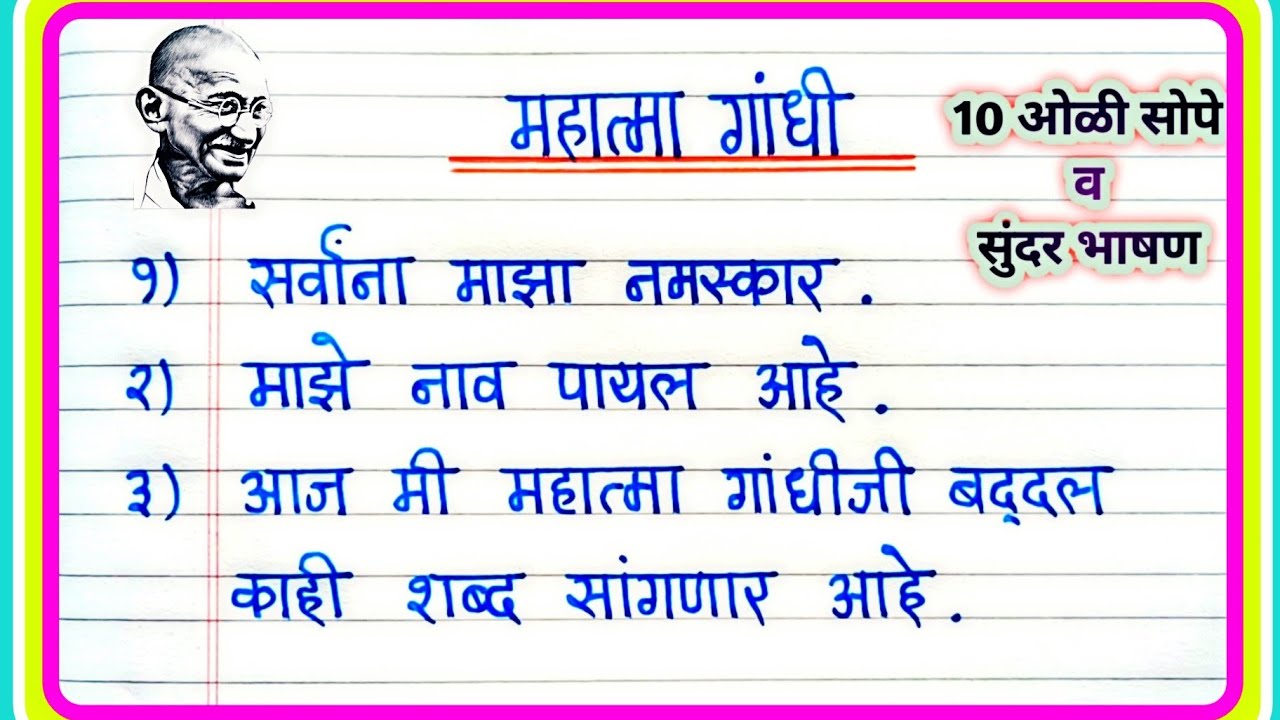 महात्मा गांधी
10 ओळी सोपे
व
सुंदर भाषण
१) सर्वांना माझा नमस्कार .
२) माझे नाव पायल आहे .
३) आज मी महात्मा गांधीजी बद्दल
काही शब्द सांगणार आहे .